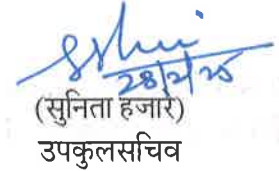 28/2/25
(सुनिता हजारे)
उपकुलसचिव